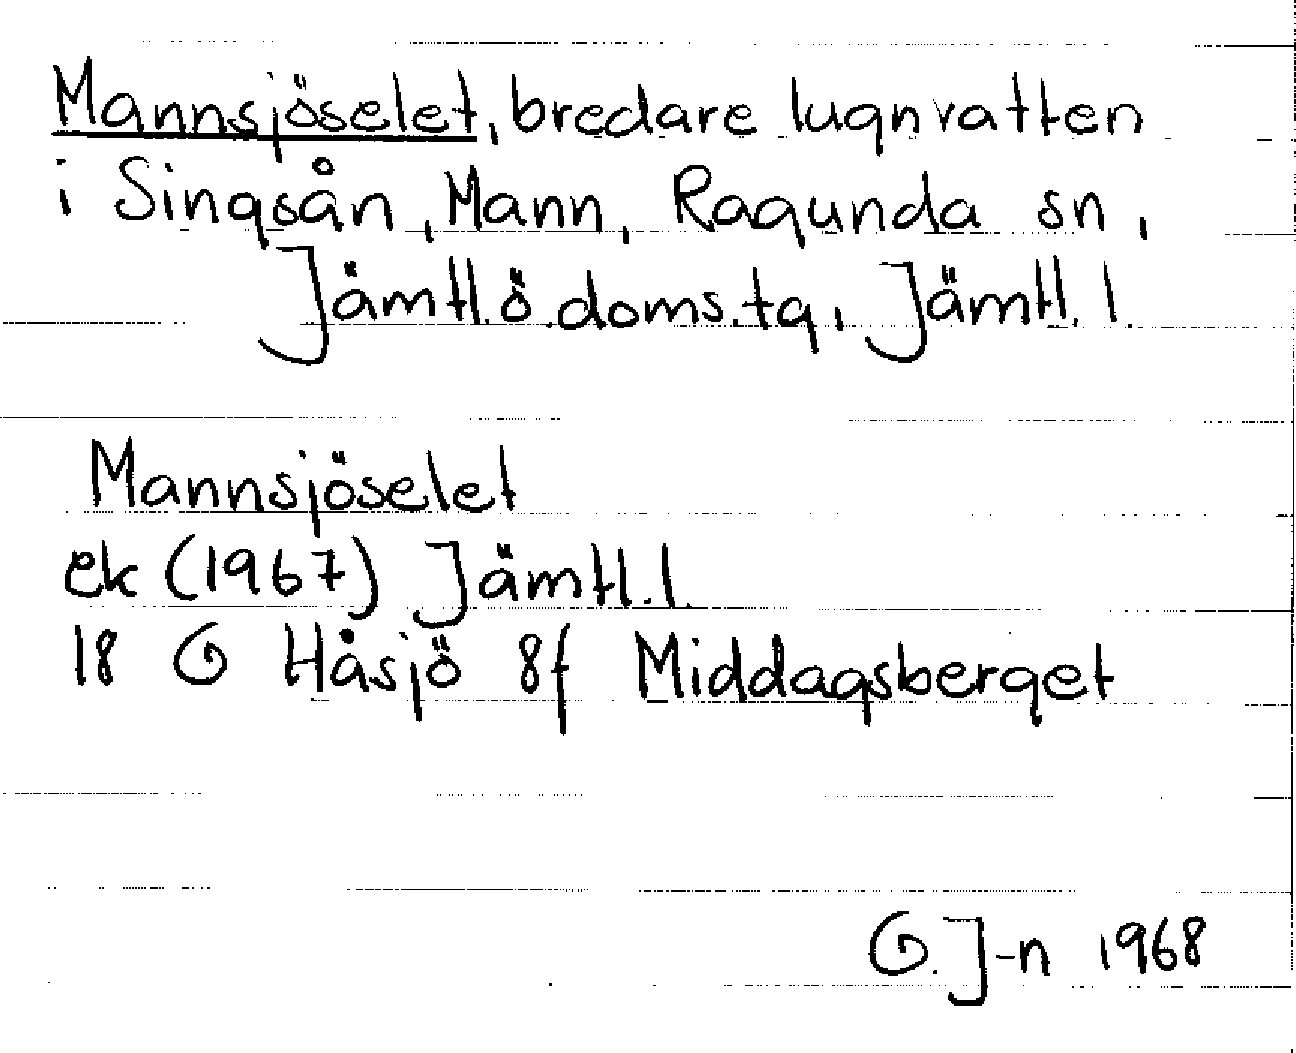 Mannsjöselet, bredare lugnvatten
i Singsån, Mann, Ragunda sn,
Jämtl.ö.doms.tg, Jämtl.l.
Mannsjöselet
ek (1967) Jämtl.l.
18 G Håsjö 8f Middagsberget
G.J-n 1968